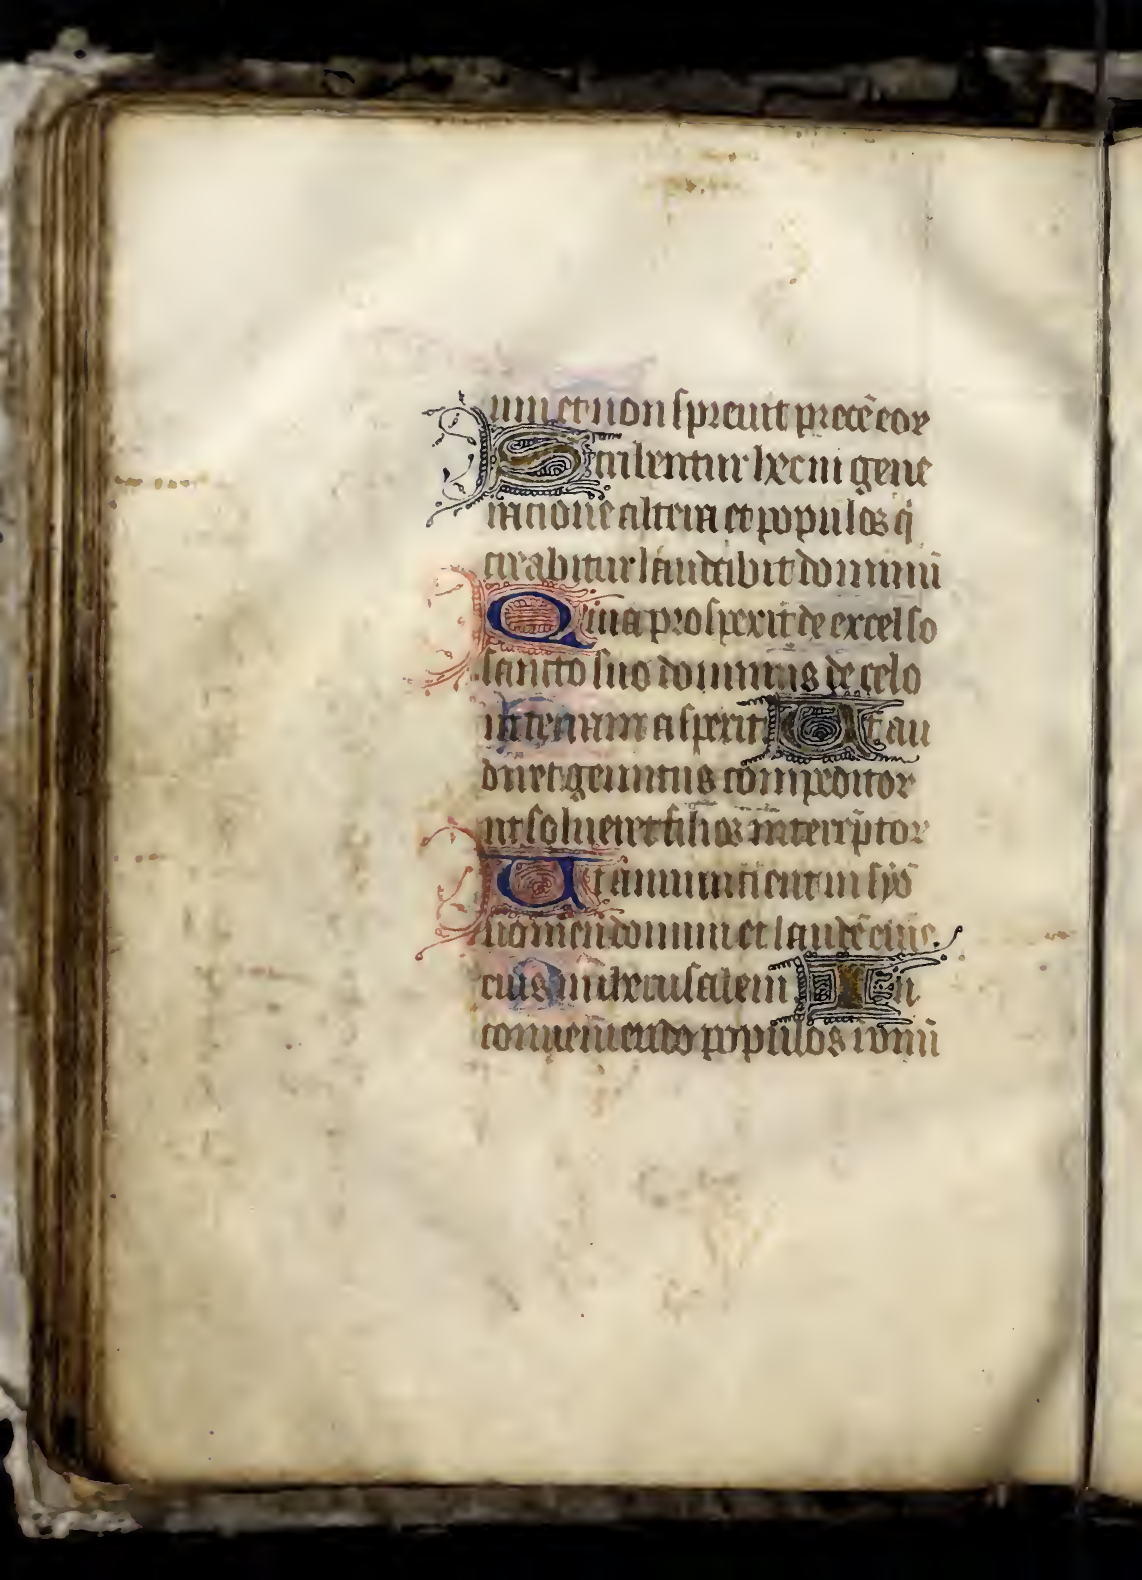 lium et non spreuit precē eoꝝ
Scribentur hec in gene
ratione altera et populus q̄
creabitur laudabit dominū
Quia prospexit de excelso
sancto suo dominus de celo
in terram aspexit Ut au
diret gemitus compeditoꝝ
ut solueret filios interēptoꝝ
Ut annuntient in syō
nomen domini et laudē eius
eius in iherusalem In
conueniendo populos ī vnū